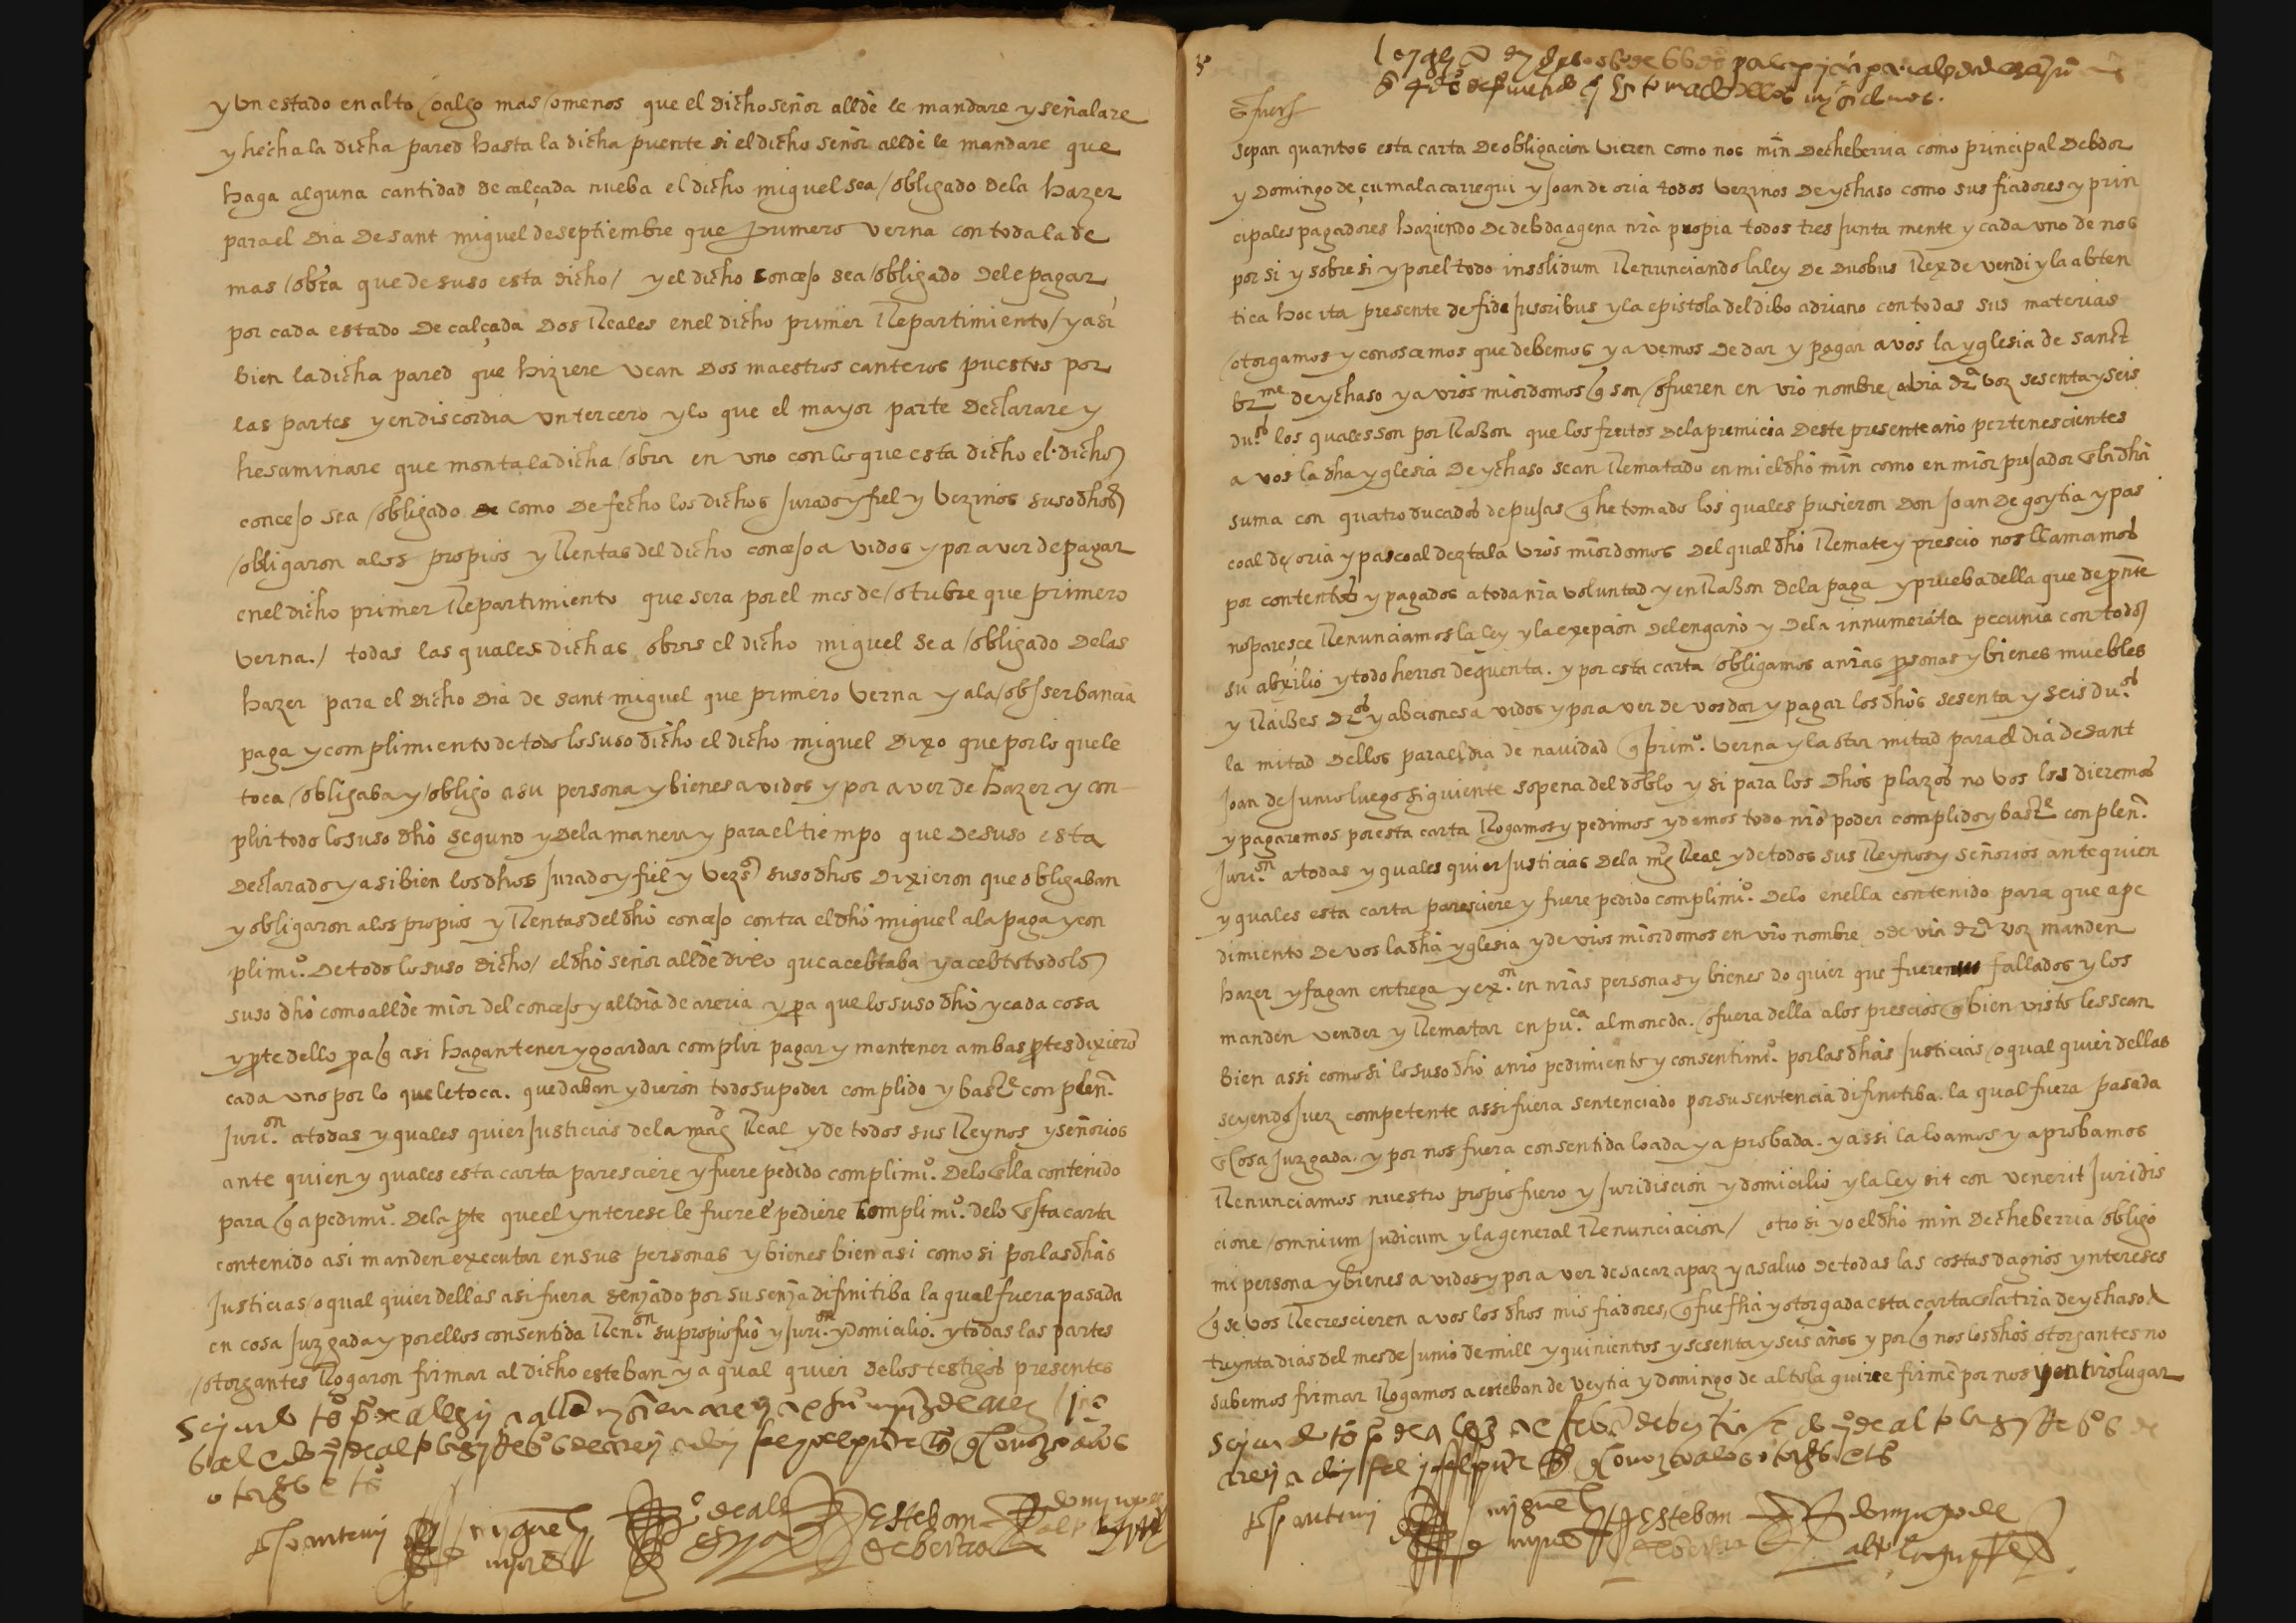 y Un estado en alto / o algo mas / o menos que el dicho señor allde le mandare y señalare
y hecha la dicha pared hasta la dicha puente si el dicho señor allde le mandare que
haga alguna cantidad de calçada nueba el dicho miguel sea / obligado dela hazer
para el dia de sant miguel de septiembre que primero verna con toda la de
mas / obra que de suso esta dicho / y el dicho concejo sea / obligado dele pagar
por cada estado de calçada dos Reales en el dicho primer Repartimiento / y asi
bien la dicha pared que hiziere vean dos maestros canteros puestos por
las partes y en discordia un tercero y lo que el mayor parte declarare y
hesaminare que monta la dicha / obra en uno con lo que esta dicho el dicho
concejo sea / obligado como de fecho los dichos jurado y fiel y vezinos suso dhos
/ obligaron a los propios y Rentas del dicho concejo avidos y por aver de pagar
en el dicho primer Repartimiento que sera por el mes de / otubre que primero
verna. / todas las quales dichas obras el dicho miguel sea / obligado delas
hazer para el dicho dia de sant miguel que primero verna y a la / obserbancia
paga y complimiento de todo lo suso dicho el dicho miguel dixo que por lo que le
toca / obligaba y / obligo a su persona y bienes avidos y por aver de hazer y con
plir todo lo suso dho segund y dela manera y para el tiempo que de suso esta
declarado y asi bien los dhos jurado y fiel y vezos suso dhos dixieron que obligaban
y obligaron a los propios y Rentas del dho concejo contra el dho miguel a la paga y con
plimio. de todo lo suso dicho / el dho señor allde dixo que acebtaba y acebto todo lo
suso dho como allde mior del concejo y alldia de areria y pa que lo suso dho y cada cosa
y pte dello pa q asi hagan tener y goardar complir pagar y mantener ambas ptes dixiero
cada uno por lo que le toca. que daban y dieron todo su poder complido y baste con plena.
juri.on a todas y quales quier justicias dela mag Real y de todos sus Reynos y señorios
ante quien y quales esta carta paresciere y fuere pedido complimio. delo ella contenido
para q a pedimio. dela pte que el ynterese le fuere e pediere complimio. delo esta carta
contenido asi manden executar en sus personas y bienes bien asi como si por las dhas
justicias / o qual quier dellas asi fuera senjado por su senja difinitiba la qual fuera pasada
en cosa juzgada y por ellos consentida Ren.on su propio fuo y juri.on y domicilio. y todas las partes
/ otorgantes Rogaron firmar al dicho esteban y a qual quier delos testigos presentes
miguel
Esteban
de beytia
sepan quantos esta carta de obligacion vieren como nos min decheberria como principal debdor
y domingo de çumalacarregui y joan de oria todos vezinos de ychaso como sus fiadores y prin
cipales pagadores haziendo de debda agena nra propia todos tres junta mente y cada uno de nos
por si y sobre si y por el todo insolidum Renunciando la ley de duobus Rex de vendi y la abten
tica hoc ita presente de fide jusoribus y la epistola del dibo adriano con todas sus materias
/ otorgamos y conoscemos que debemos y avemos de dar y pagar a vos la yglesia de sanct
br.me de ychaso y a vros miordomos q son / o fueren en vro nombre / o a vra dra voz sesenta y seis
du.os los quales son por Razon que los frutos dela premicia deste presente año pertenescientes
a vos la dha yglesia de ychaso sean Rematado en mi el dho min como en mior pujador en la dha
suma con quatro ducados de pujas q he tomado los quales pusieron don joan de goytia y pas
coal de oria y pascoal deztala vros miordomos del qual dho Remate y prescio nos llamamos
por contentos y pagados a toda nra voluntad y en Razon dela paga y prueba della que de pnte
no paresce Renunciamos la ley y la exepcion del engaño y dela innumerata pecunia con todo
su abxilio y todo herror de quenta. y por esta carta / obligamos a nras psonas y bienes muebles
y Raizes dros y abciones avidos y por aver de vos dar y pagar los dhos sesenta y seis du.os
la mitad dellos para el dia de navidad q primo. verna y la otra mitad para el dia de sant
joan de junio luego siguiente so pena del doblo y si para los dhos plazos no vos los dieremos
y pagaremos por esta carta Rogamos y pedimos y damos todo nro poder complido y baste con plena.
juri.on a todas y quales quier justicias dela mag Real y de todos sus Reynos y señorios ante quien
y quales esta carta paresciere y fuere pedido complimio. delo en ella contenido para que a pe
dimiento de vos la dha yglesia y de vros miordomos en vro nombre o de vra dra voz manden
hazer y fagan entrega y ex.on en nras personas y bienes do quier que fueren fallados y los
manden vender y Rematar en pu.ca almoneda. / o fuera della a los prescios q bien visto les sean
bien assi como si lo suso dho a nro pedimiento y consentimio. por las dhas justicias / o qual quier dellas
seyendo juez competente assi fuera sentenciado por su sentencia difinitiba. la qual fuera pasada
en cosa juzgada. y por nos fuera consentida loada y aprobada. y assi la loamos y aprobamos
Renunciamos nuestro propio fuero y juridiscion y domicilio y la ley sit con venerit juridis
cione / omnium judicum y la general Renunciacion / otro si yo el dho min decheberria obligo
mi persona y bienes avidos y por aver de sacar a paz y a salvo de todas las costas dagnos yntereses
q se vos Recrescieren a vos los dhos mis fiadores, q fue fha y otorgada esta carta en la trra de ychaso a
treynta dias del mes de junio de mill y quinientos y sesenta y seis años y por q nos los dhos otorgantes no
sabemos firmar Rogamos a esteban de veytia y domingo de altolaguirre firme por nos y en nro lugar
miguel
Esteban
domingo de